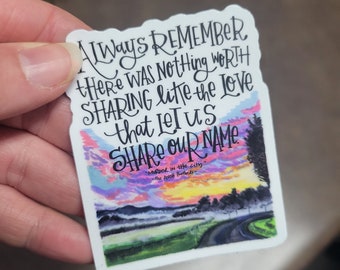 ALWAYS REMEMBER
there was nothing worth
SHARING like the love
that let us
SHARE OUR NAME